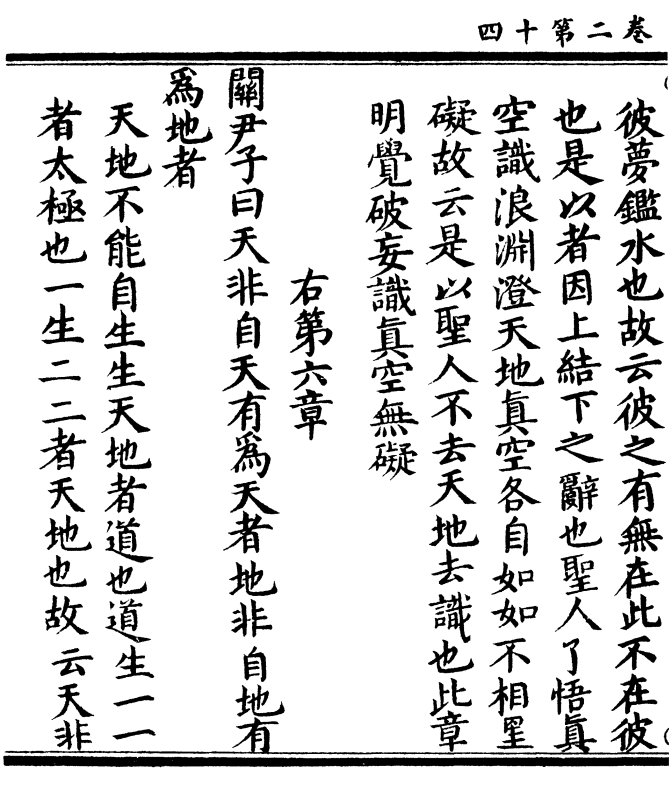 卷二第十四
彼夢鑑水也故云彼之有無在此不在彼
也是以者因上結下之辭也聖人了悟真
空識浪淵澄天地真空各自如如不相罣
礙故云是以聖人不去天地去識也此章
明覺破妄識真空無礙
右第六章
關尹子曰天非自天有爲天者地非自地有
爲地者
天地不能自生生天地者道也道生一一
者太極也一生二二者天地也故云天非